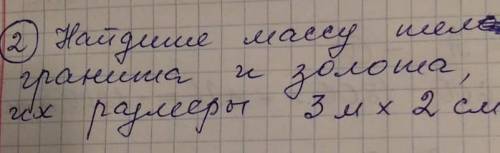 ② Найдите массу тел
гранита и золота,
их размеры 3 м х 2 см